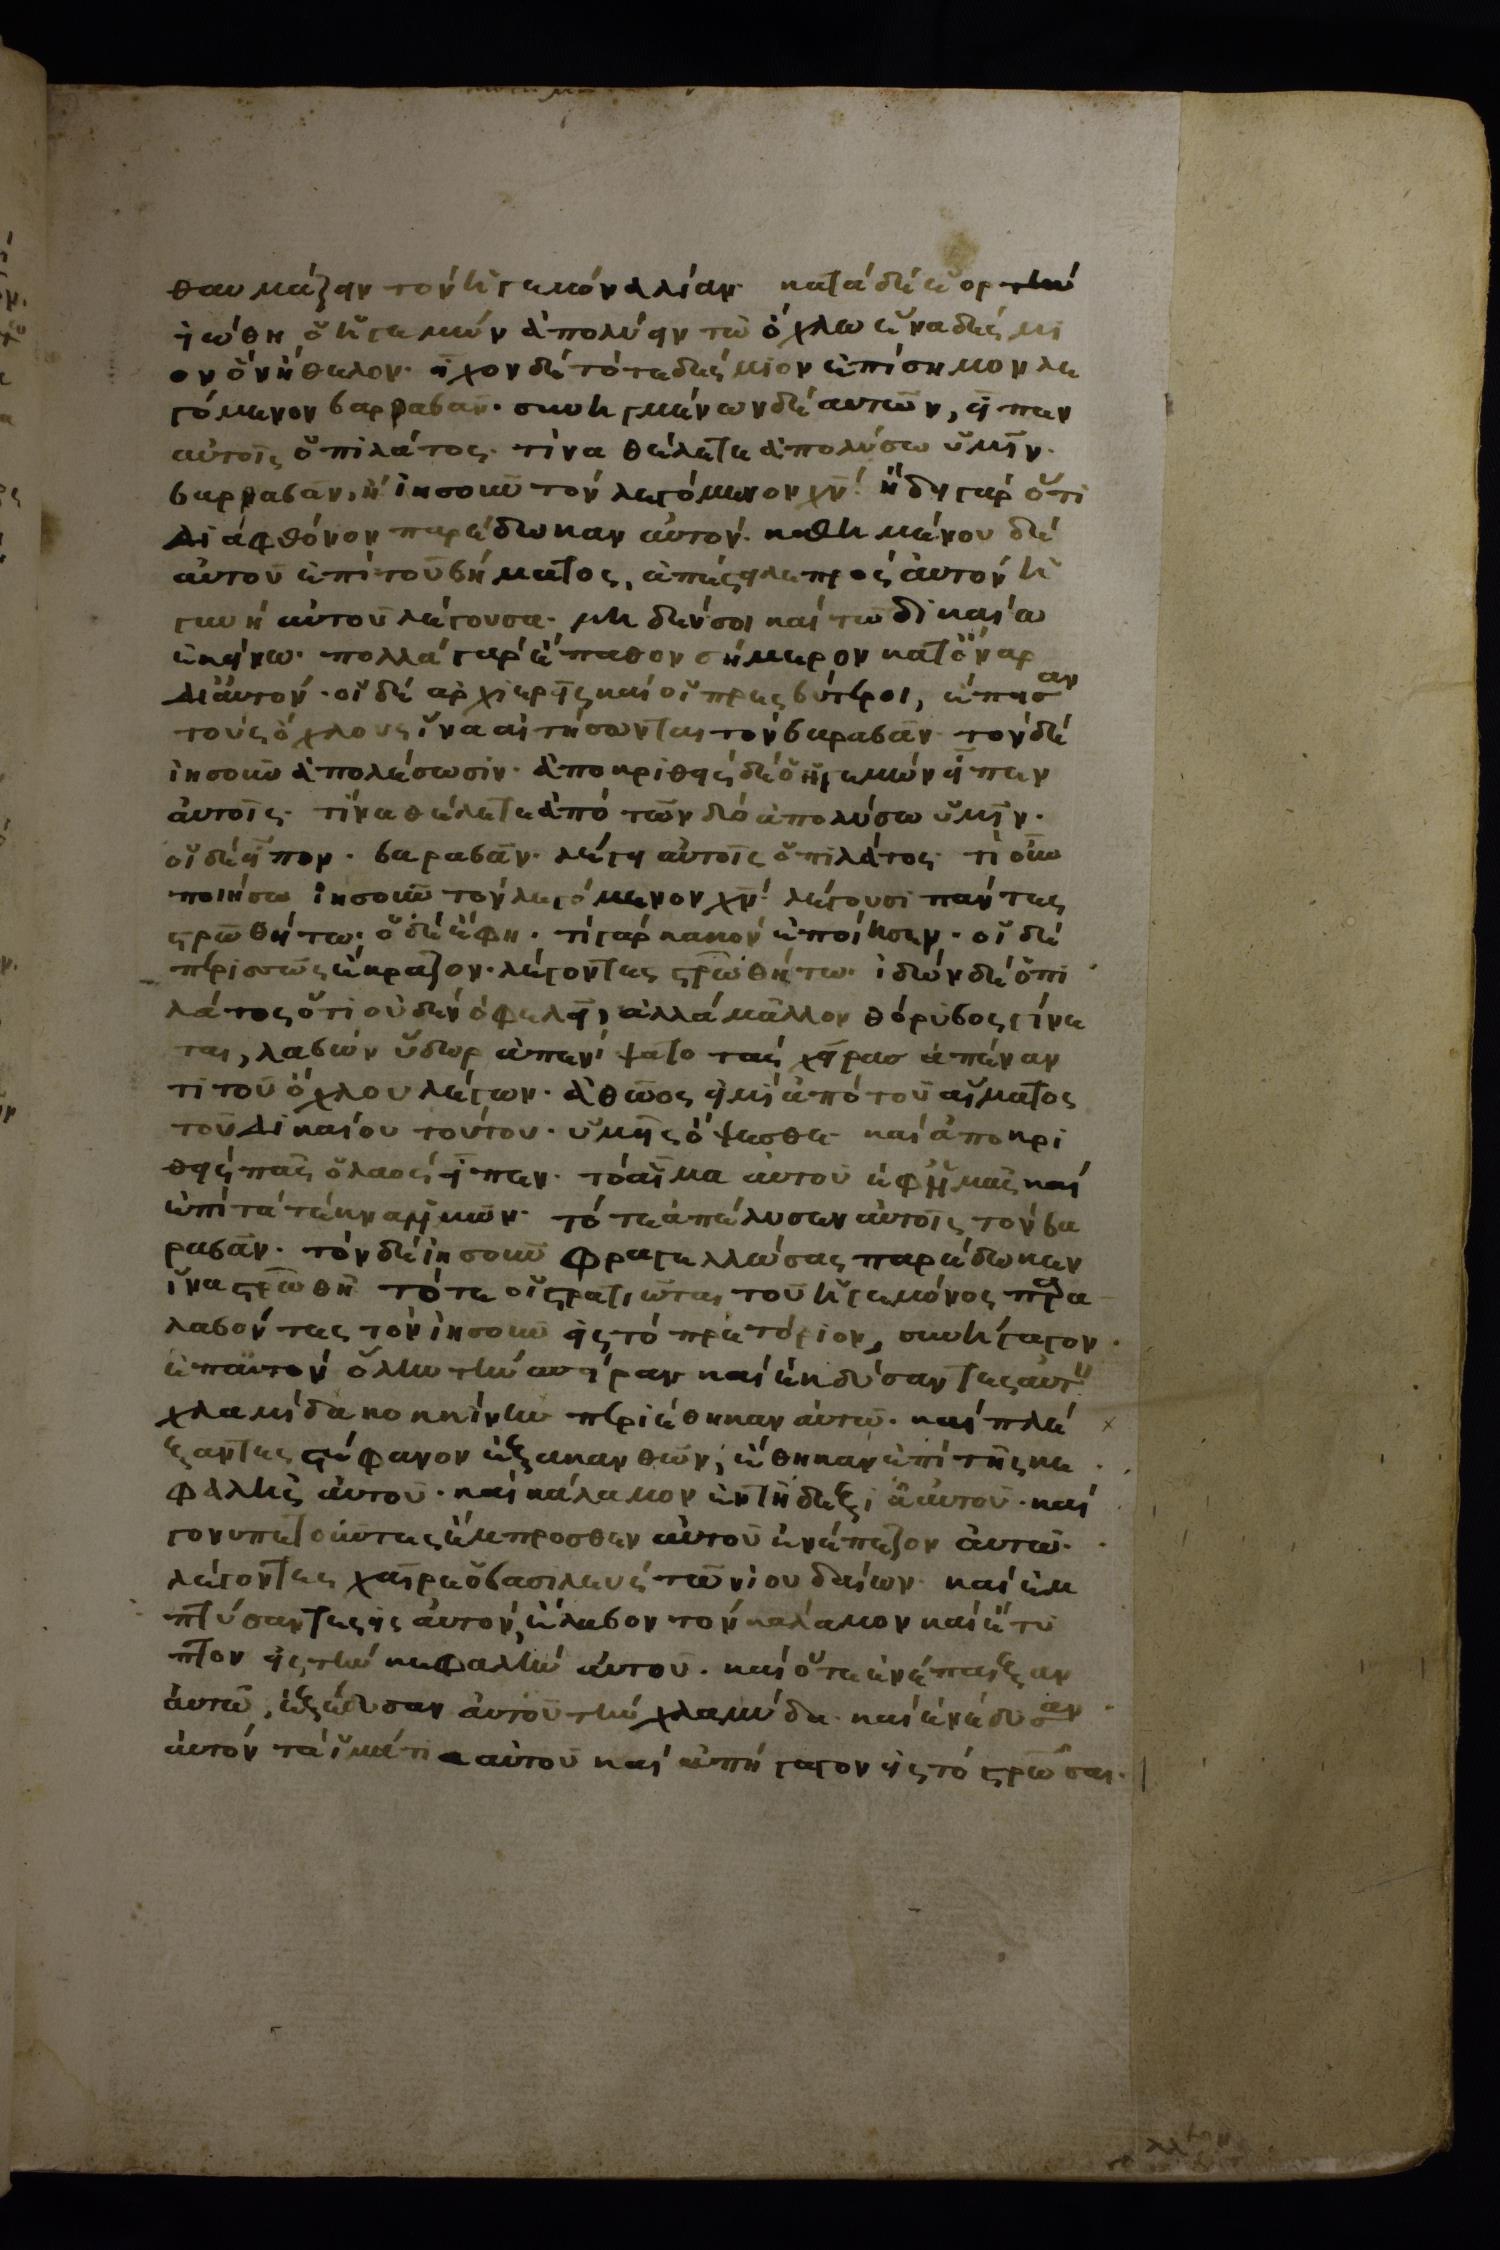 θαυμάζειν τὸν ἡγεμόνα λίαν· κατὰ δὲ ἑορτὴν
εἰώθη ὁ ἡγεμὼν ἀπολύειν τῶ ὄχλω ἕνα δέσμι
ον ὃν ἤθελον· εἶχον δὲ τότε δέσμιον ἐπίσημον λε
γόμενον βαρραβᾶν· συνηγμένων δὲ αυτῶν, εἶπεν
αὐτοῖς ὁ πιλάτος· τίνα θέλετε ἀπολύσω ὑμῖν·
βαρραβᾶν, ἢ ἰησοῦν τὸν λεγόμενον χν̅· ἤδει γὰρ ὅτι
διὰ φθόνον παρέδωκαν αὐτόν· καθημένου δὲ
αὐτοῦ ἐπὶ τοῦ βήματος, ἀπέστειλε πρὸς ἀυτὸν ἡ
γυνὴ αὐτοῦ λέγουσα· μηδὲν σοι καὶ τῶ δικαίω
ἐκείνω· πολλὰ γὰρ ἔπαθον σήμερον κατ ὄναρ
δι ἀυτόν· οἱ δὲ αρχιερεῖς καὶ οἱ πρεσβύτεροι, ἔπεισαν
τοὺς ὄχλους ἵνα αἰτήσωνται τὸν βαραβᾶν· τὸν δὲ
ἰησοῦν ἀπολέσωσιν· ἀποκριθεὶς δὲ ὁ ἡγεμὼν εἶπεν
ἀυτοῖς· τίνα θέλετε ἀπὸ τῶν δύο ἀπολύσω ὑμῖν·
οἱ δὲ εἶπον· βαραβᾶν· λέγει αὐτοῖς ὁ πιλάτος· τί οῦν
ποιήσω ἰησοῦν τὸν λεγόμενον χν̅· λέγουσι παντες
στρω̅θήτω· ὁ δὲ ἔφη· τί γὰρ κακὸν ἐποίησεν· οἱ δὲ
περισσῶς ἔκραζον· λέγοντες στρω̅θήτω· ἰδὼν δὲ ὁ πι
λάτος ὅτι οὐδὲν ὀφελεῖ, ἀλλὰ μᾶλλον θόρυβος γίνε
ται, λαβὼν ὕδωρ ἀπενίψατο τὰς χεῖρας ἀπέναν
τι τοῦ ὄχλου λέγων· ἀθῶος εἰμὶ ἀπὸ τοῦ αἵματος
τοῦ δικαίου τούτου· ὑμεῖς ὄψεσθε· καὶ ἀποκρι
θεὶς πᾶς ὁ λαὸς εἶπεν· τὸ αἷμα ἀυτοῦ ἐφ ἡμᾶς καὶ
ἐπὶ τὰ τέκνα ἡμῶν· τότε ἀπέλυσεν ἀυτοῖς τὸν βα
ραβᾶν· τὸν δὲ ἰησοῦν φραγελλώσας παρέδωκεν
ἵνα στρω̅θῆ τότε οἱ στρατιῶται τοῦ ἡγεμόνος παρα
λαβόντες τὸν ἰησοῦν εἰς τὸ πραιτόριον, συνήγαγον
ἐπ ἀυτὸν ὅλην τὴν σπείραν καὶ ἐκδύσαντες αυτὸν
χλαμίδα κοκκίνην περιέθηκαν αὐτῶ· καὶ πλέ
ξαντες στέφανον ἐξ ακανθῶν, ἔθηκαν ἐπὶ τῆς κε
φαλῆς ἀυτοῦ· καὶ κάλαμον ἐν τῆ δεξιᾶ ἀυτοῦ· καὶ
γονυπετοῦντες ἔμπροσθεν αὐτοῦ ἐνέπαιζον ἀυτῶ·
λέγοντες χαῖρε ὁ βασιλεὺς τῶν ἰουδαίων· καὶ ἐμ
πτύσαντες εἰς ἀυτόν, ἔλαβον τὸν κάλαμον καὶ ἔτυ
πτον εἰς τὴν κεφαλὴν ἀυτοῦ· καὶ ὅτε ἐνέπαιξαν
ἀυτῶ, ἐξέδυσαν ἀυτοῦ τὴν χλαμύδα· καὶ ἐνέδυσαν
ἀυτὸν τὰ ἱμάτια αὐτοῦ καὶ ἀπήγαγον εἰς τὸ στρω̅σαι·